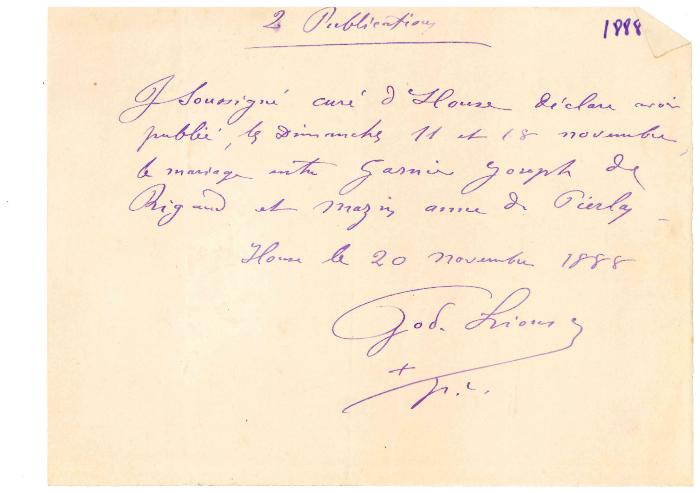 2 Publications
1888
J Soussigné curé d'House déclare avoir
publié, les Dimanches 11 et 18 novembre,
le mariage entre Garnier Joseph de
Rigaud et Mazin anne de Pierlas
House le 20 novembre 1888
God.
+
p.c.